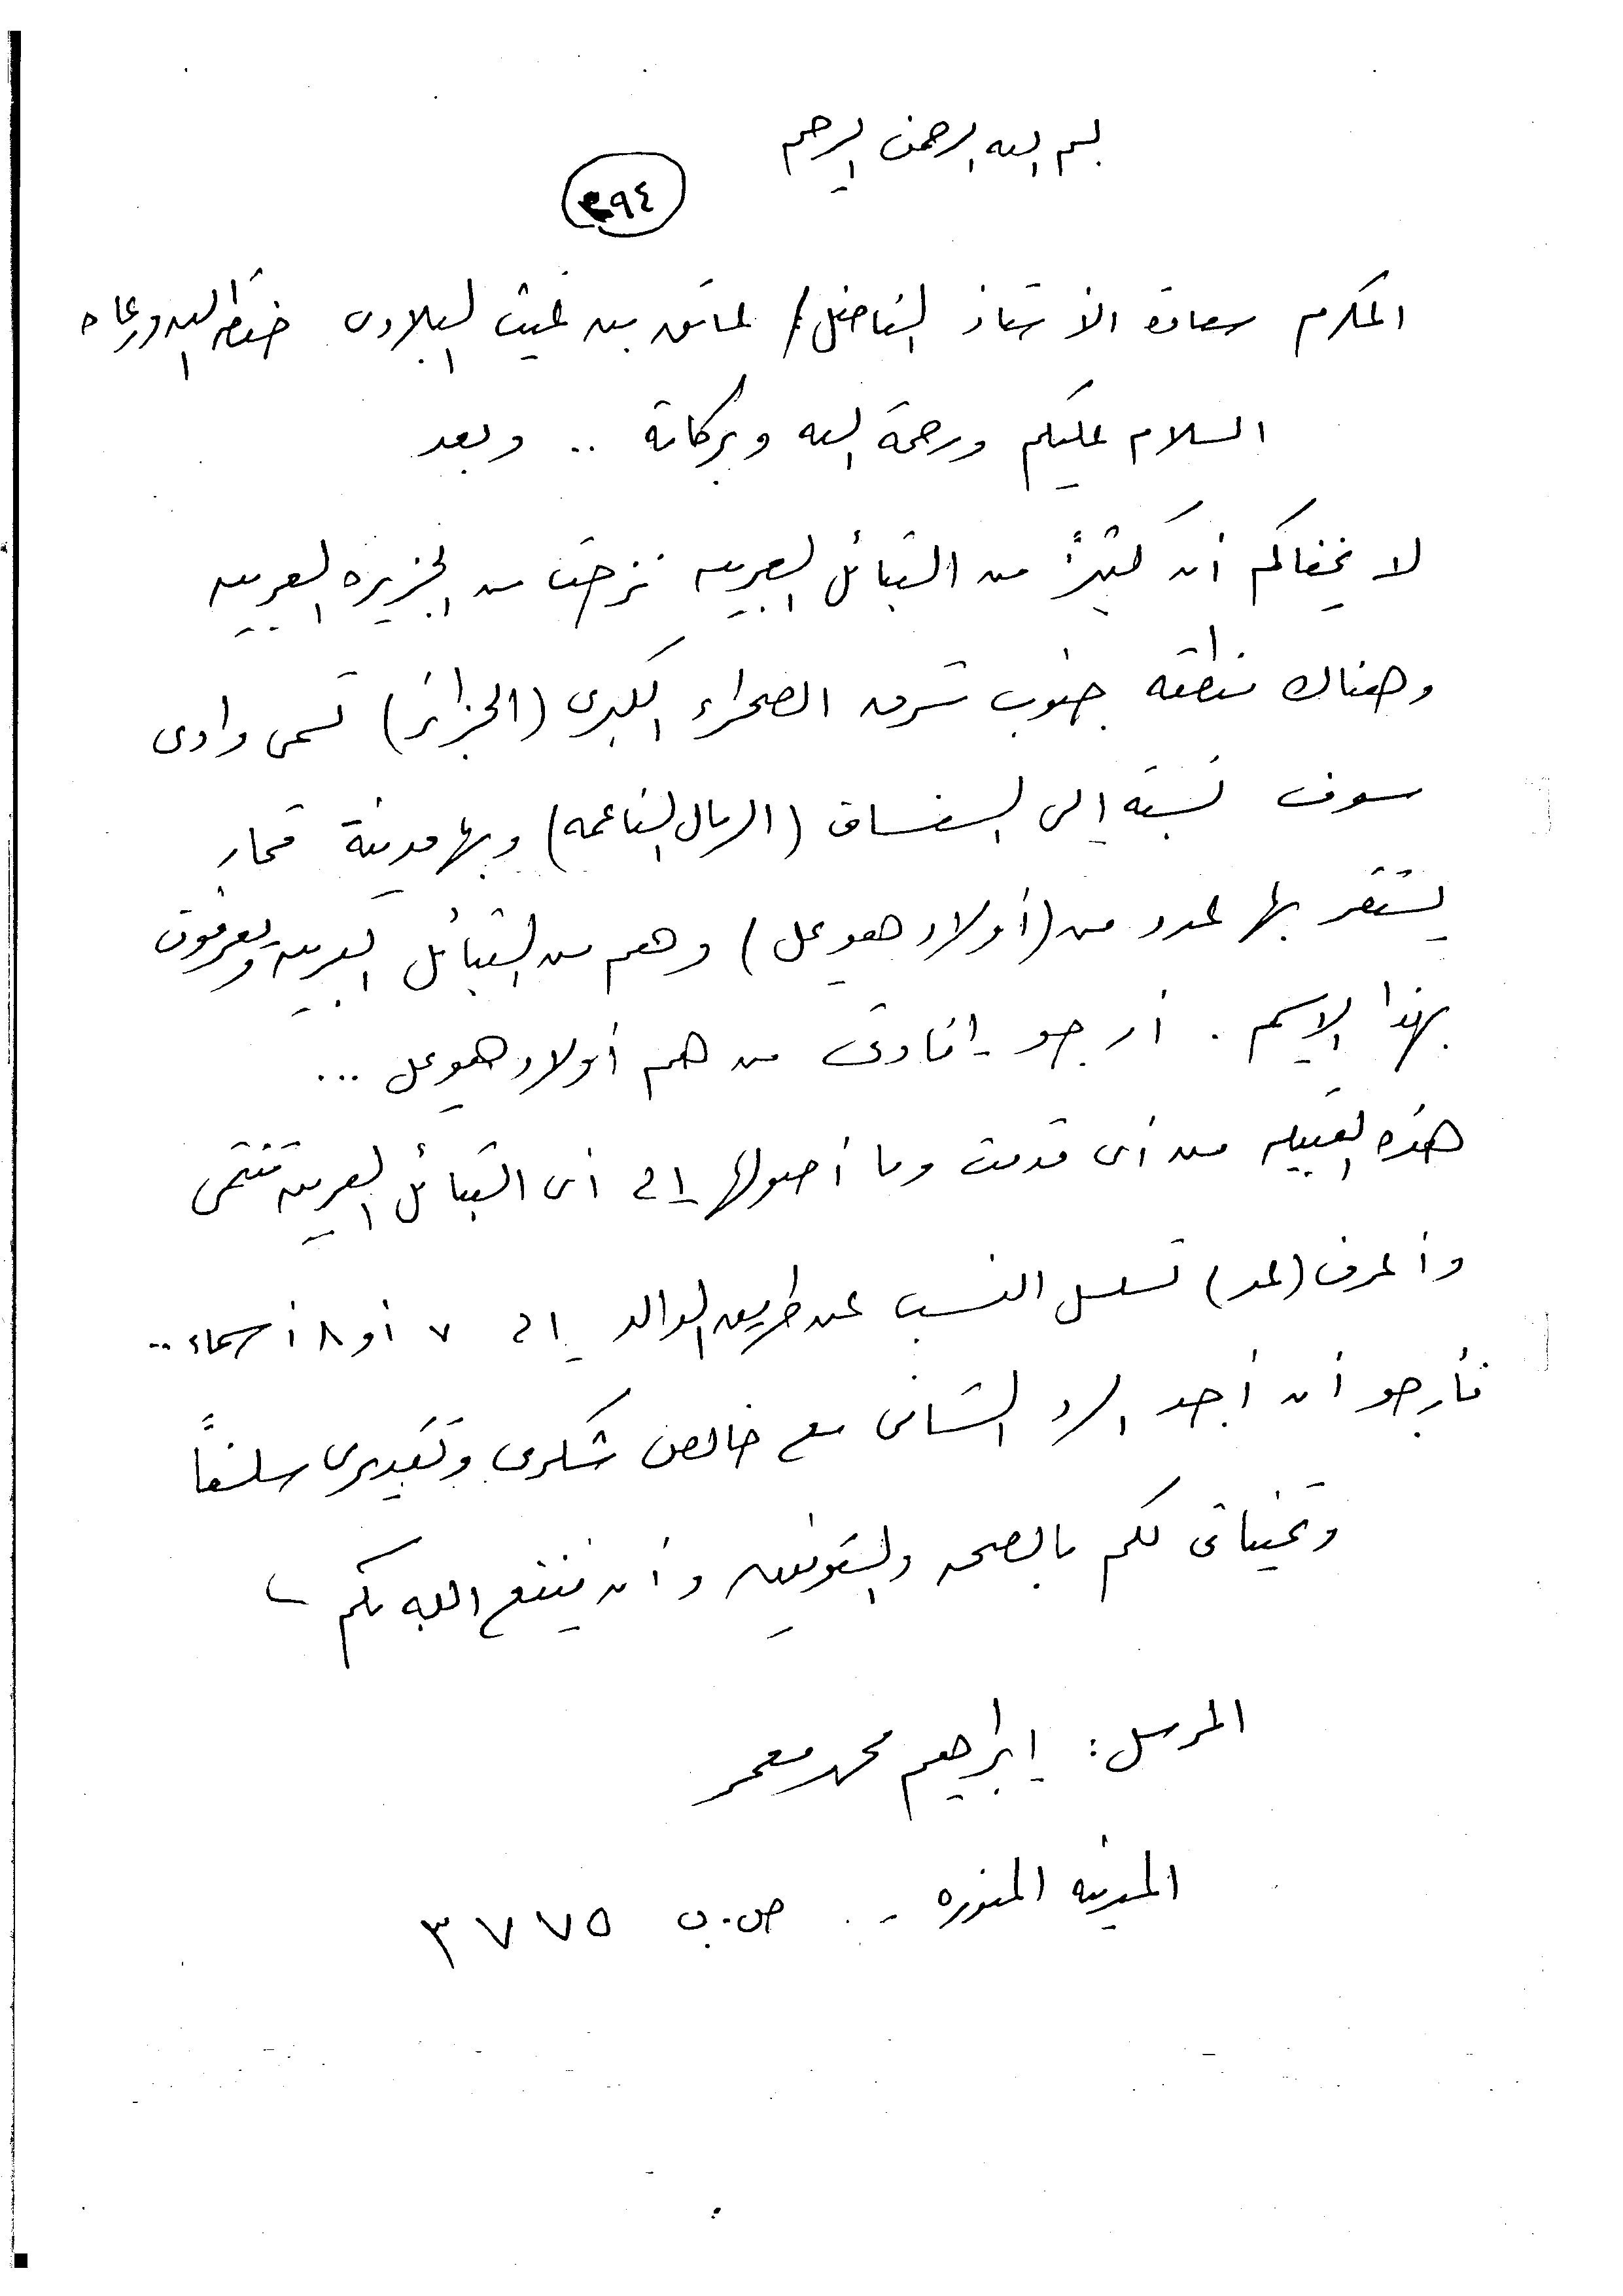 بسم الله الرحمن الرحيم
٢٩٤
المكرم سعادة الأستاذ الفاضل / عاتق بن غيث البلادى حفظه الله ورعاه
السلام عليكم ورحمة الله وبركاتة .. وبعد
لا يخفاكم أن كثيراً من القبائل العربيه نزحت من الجزيره العربيه
وهناك منطقه جنوب شرق الصحراء الكبرى (الجزائر) تسمى وادى
سوف نسبته إلى السفساف (الرمال الناعمه) وبها مدينة قمار
يستقر بها عدد من (أولاد هويمل) وهم من القبائل العربيه ويعرفون
بهذا الإسم . أرجو إفادتى من هم أولاد هويمل ...
هذه القبيله من أى قدمت وما أصولها إلى أى القبائل العربيه تنتمى
وأعرف (عد) تسلسل النسب عن طريق الوالد إلى ٧ أو ٨ أسماء ..
فأرجو أن أجد الرد الشافى مع خالص شكرى وتقديرى سلفاً
وتمنياتى لكم بالصحه والتوفيق وأن ينفع الله بكم
المرسل : إبراهيم محمد معمر
المدينه المنوره - ص.ب ٣٧٧٥